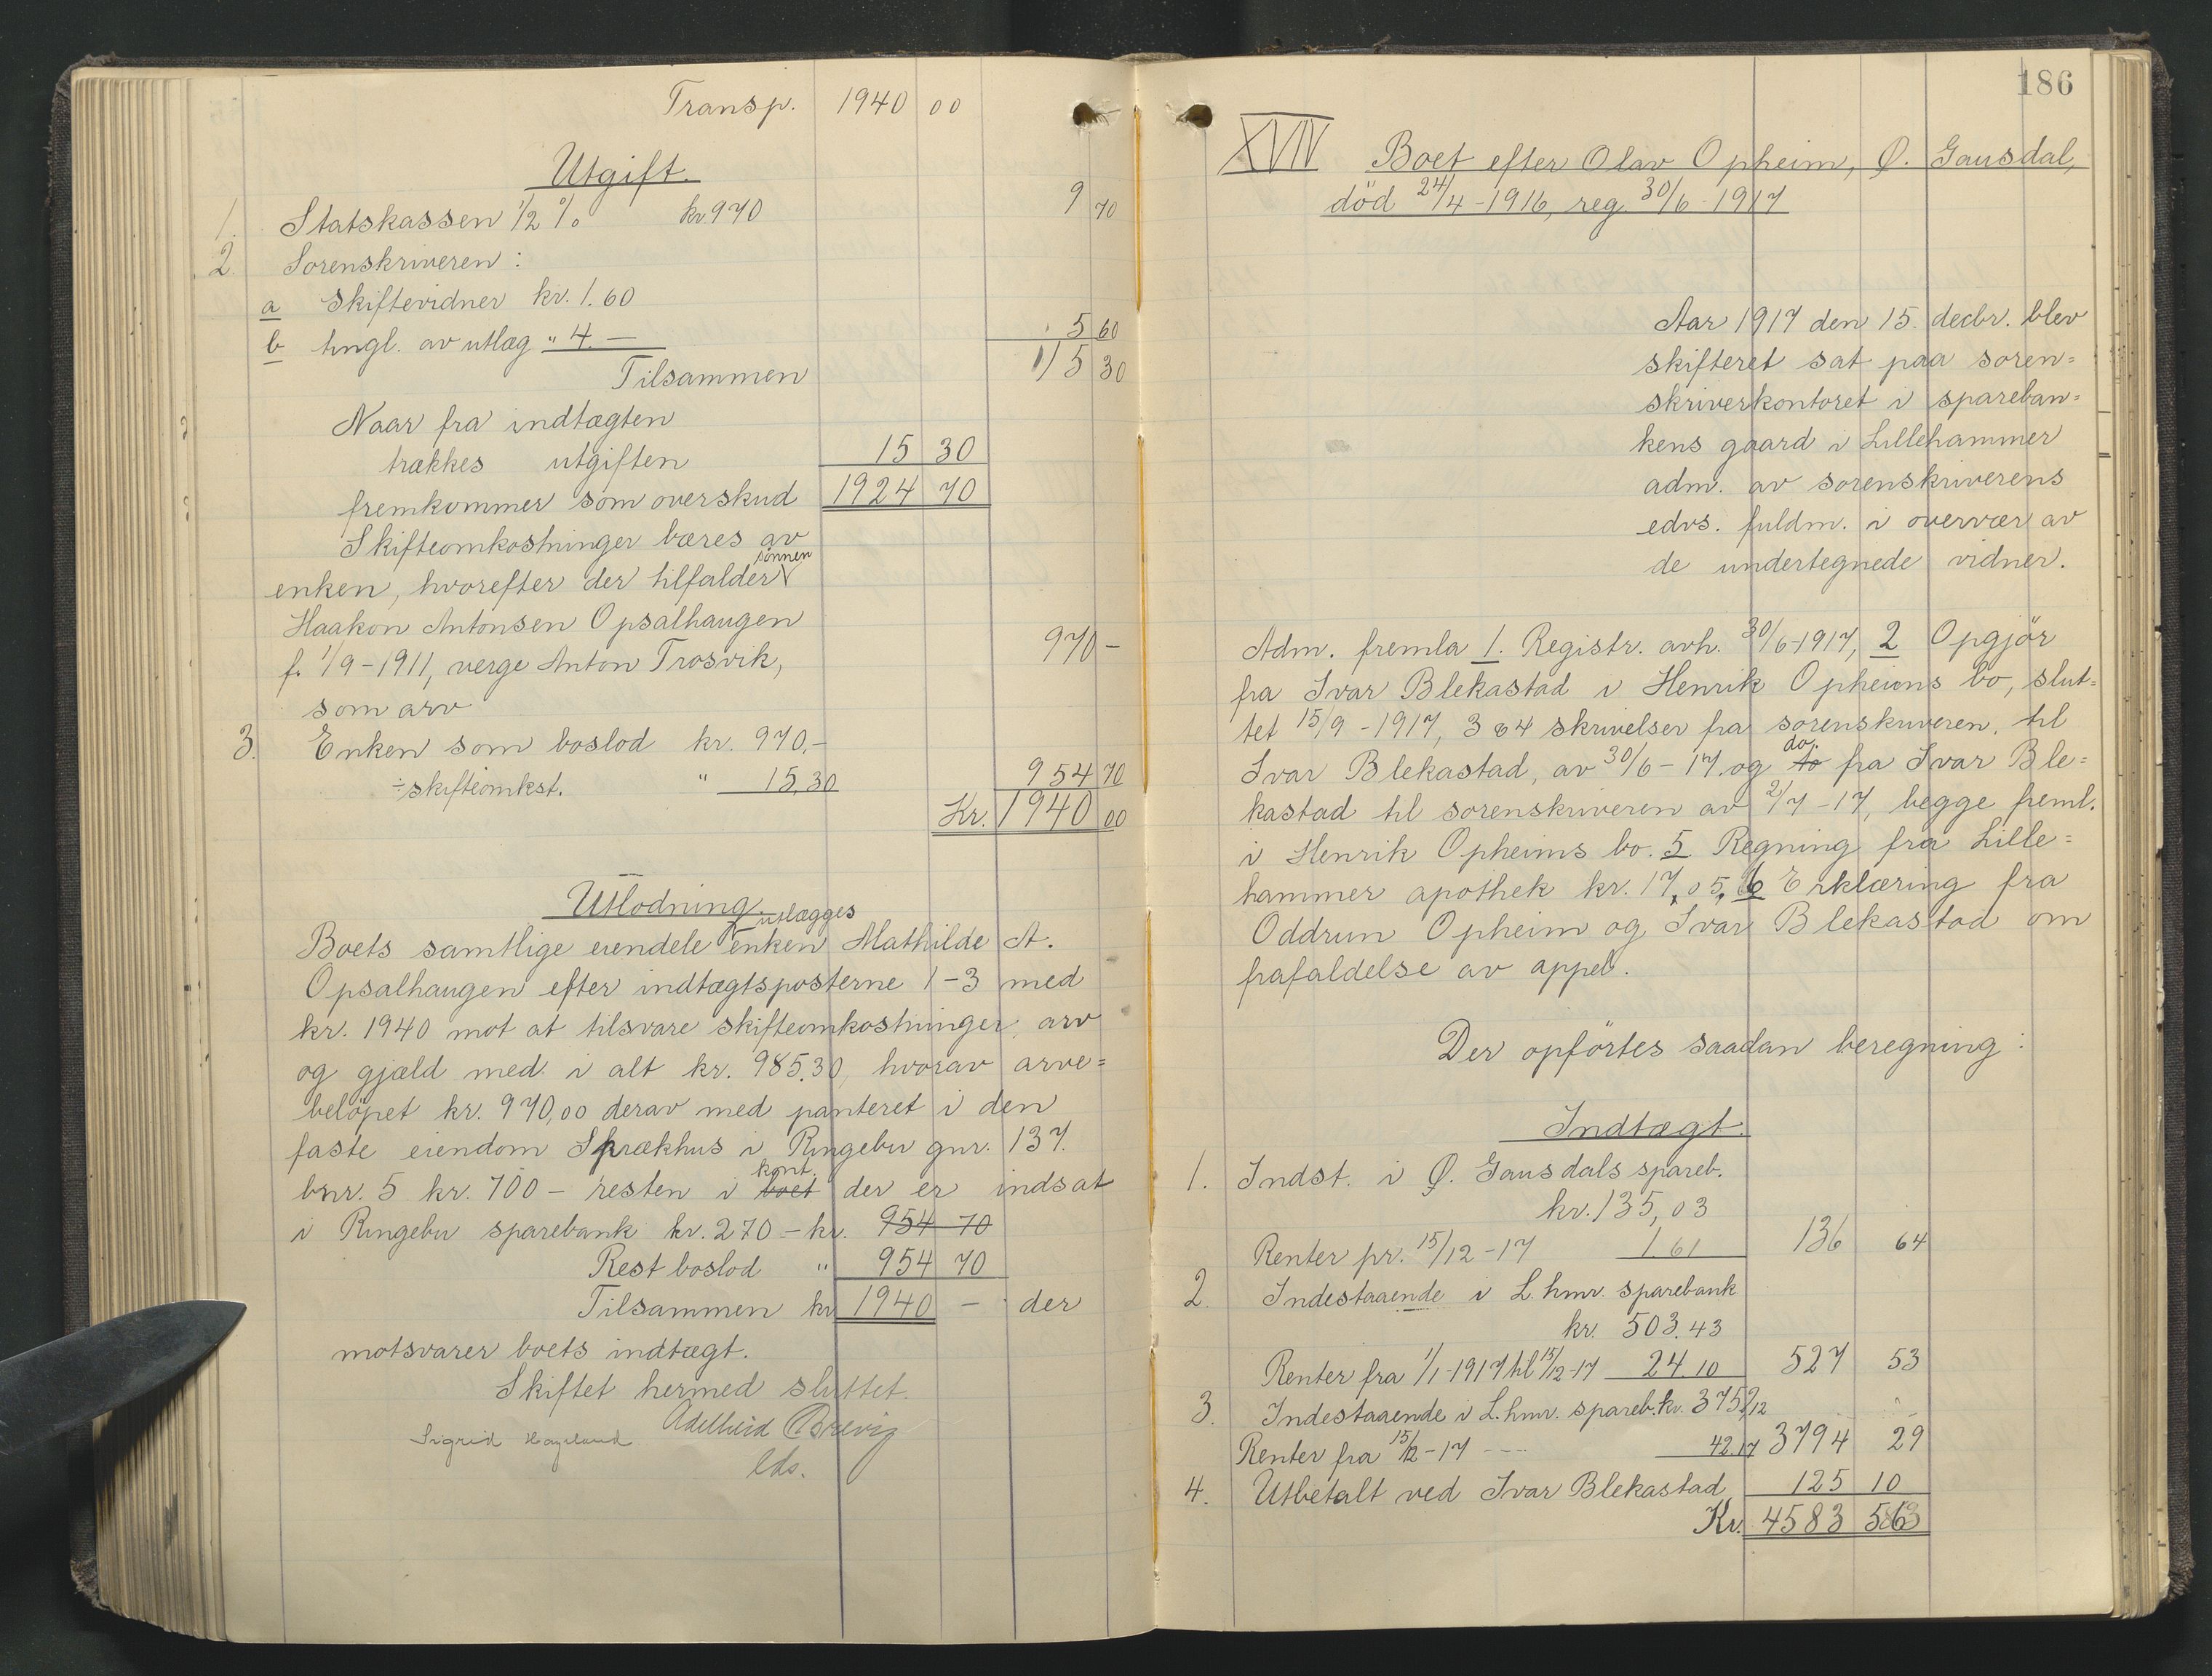 Transp. 1940 00
Utgift.
1. Statskassen 1/2 % kr 970 9 70
2. Sorenskriveren:
a Skiftevidner kr. 1.60
b tingl. av utlæg " 4.— 5 60
Tilsammen 15 30
Naar fra indtægten
trækkes utgiften 15 30
fremkommer som overskud 1924 70
Skifteomkostninger bæres av
enken, hvorefter der tilfalder sønnen
Haakon Antonsen Opsalhaugen
f. 1/9-1911, verge Anton Trosvik, 970 -
som arv
3. Enken som boslod kr. 970,-
÷ skifteomkst. " 15,30 954 70
Kr. 1940 00
Utlodning.
Boets samtlige eiendele utlægges enken Mathilde A.
Opsalhaugen efter indtægtsposterne 1-3 med
kr. 1940 mot at tilsvare skifteomkostninger, arv
og gjæld med i alt kr. 985.30, hvorav arve=
beløpet kr. 970,00 derav med panteret i den
faste eiendom Sprækhus i Ringebu gnr. 137.
bnr. 5 kr. 700 - resten i boet kont. der er indsat
i Ringebu sparebank kr. 270 - kr. 954 70
Rest boslod " 954 70
Tilsammen kr 1940 - der
motsvarer boets indtægt.
Skiftet hermed sluttet.
Sigrid Adelheid Brevig
eds.
186
XVII Boet efter Olav Opheim, Ø. Gausdal,
död 24/4-1916, reg. 30/6-1917
Aar 1917 den 15. decbr. blev
skifteret sat paa soren=
skriverkontoret i spareban=
kens gaard i Lillehammer
adm. av sorenskriverens
edvs. fuldm. i overvær av
de undertegnede vidner.
Adm. fremla 1. Registr. avh. 30/6-1917, 2 Opgjör
fra Ivar Blekastad i Henrik Opheims bo, slut=
tet 15/9-1917, 3 & 4 skrivelser fra sorenskriveren til
Ivar Blekastad, av 30/6-17. og to do. fra Ivar Ble=
kastad til sorenskriveren av 2/7-17, begge freml.
i Henrik Opheims bo. 5 Regning fra Lille=
hammer apothek kr. 17,05, 6 Erklæring fra
Oddrun Opheim og Ivar Blekastad om
frafaldelse av appel.
Der opförtes saadan beregning:
Indtægt.
1. Indst. i Ø. Gausdals spareb.
kr. 135,03
Renter pr. 15/12-17 1.61 136 64
2. Indestaaende i L.hmr. sparebank
kr. 503.43
Renter fra 1/1-1917 til 15/12-17 24.10 527 53
3. Indestaaende i L.hmr. spareb. kr. 3752,12
Renter fra 15/12-17 42.17 3794 29
4. Utbetalt ved Ivar Blekastad 125 10
Kr. 4583 56